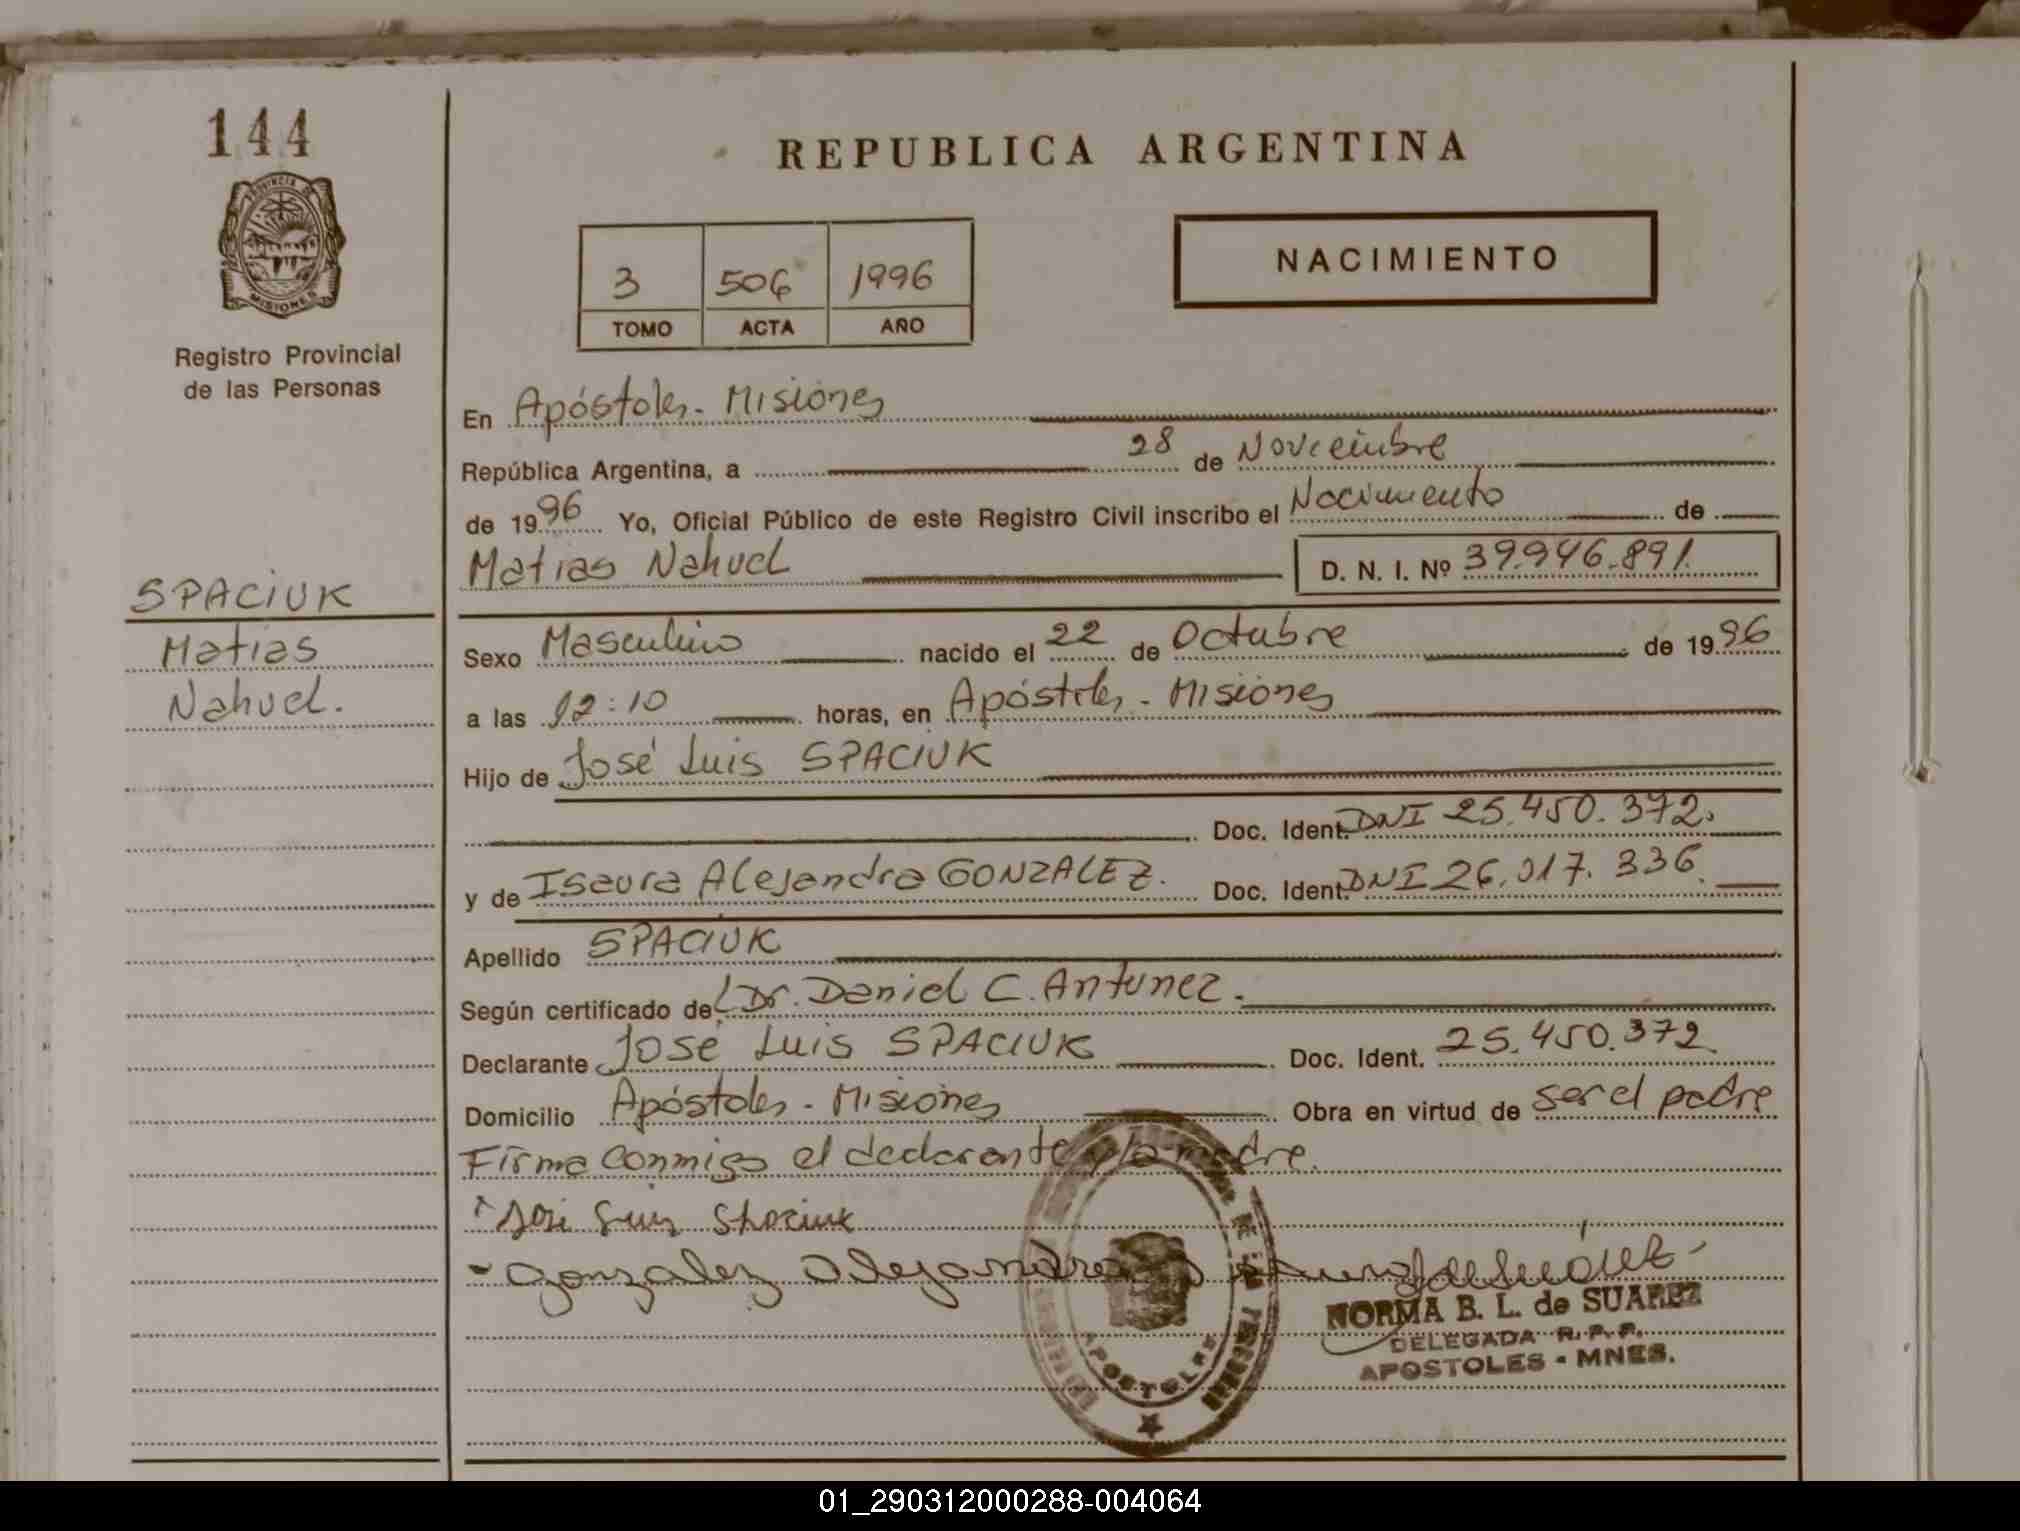 144
REPUBLICA ARGENTINA
PROVINCIA DE
MISIONES
NACIMIENTO
3 506 1996
TOMO ACTA AÑO
Registro Provincial
de las Personas
En Apóstoles - Misiones
República Argentina, a 28 de Noviembre
de 1996 Yo, Oficial Público de este Registro Civil inscribo el Nacimiento de
Matias Nahuel D. N. I. Nº 39.946.891.
SPACIUK
Matias
Nahuel.
Sexo Masculino nacido el 22 de Octubre de 1996
a las 12:10 horas, en Apóstoles - Misiones
Hijo de José Luis SPACIUK
Doc. Ident. DNI 25.450.372.
y de Isaura Alejandra GONZALEZ. Doc. Ident. DNI 26.017.336.
Apellido SPACIUK
Según certificado del Dr. Daniel C. Antunez.
Declarante José Luis SPACIUK Doc. Ident. 25.450.372
Domicilio Apóstoles - Misiones Obra en virtud de ser el padre
Firma conmigo el declarante y la madre.
José Luis Spaciuk
Gonzalez Alejandra
NORMA B. L. de SUAREZ
DELEGADA R. P. P.
APOSTOLES - MNES.
APOSTOLES
01_290312000288-004064